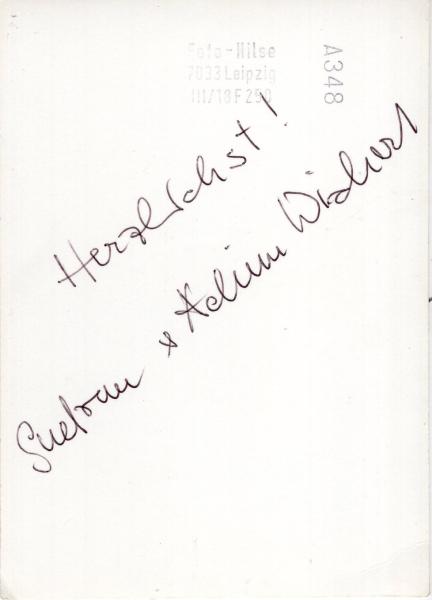 Foto-Hilse
7033 Leipzig
III/18 F 250
A348
Herzlichst!
Gudrun + Achim Wichert